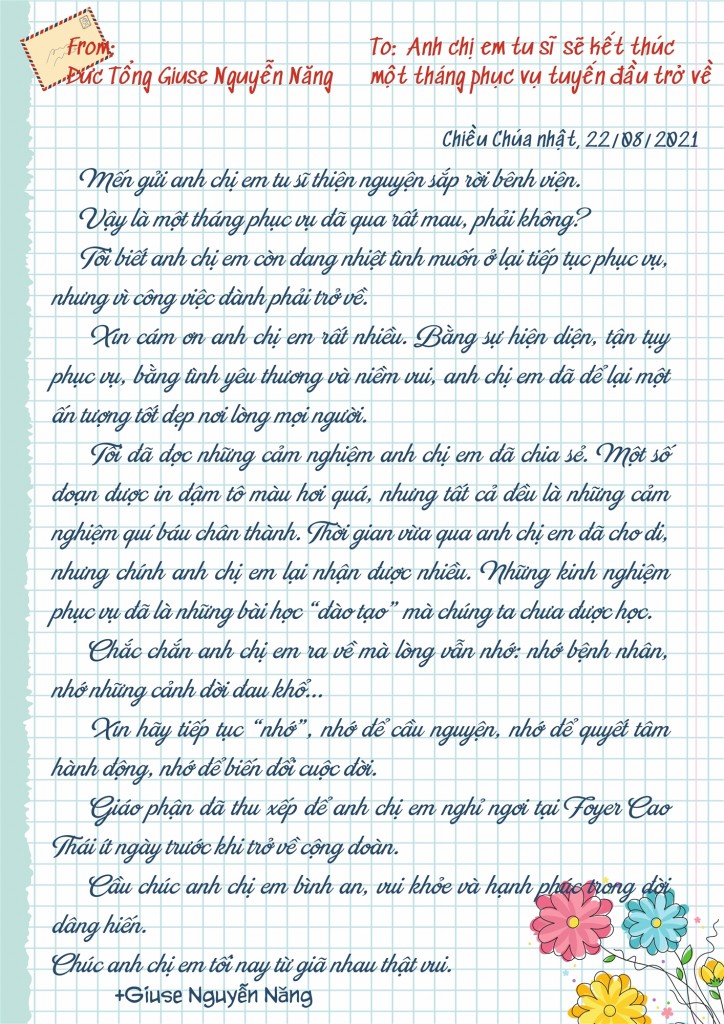 From:
To: Anh chị em tu sĩ sẽ kết thúc
Đức Tổng Giuse Nguyễn Năng
một tháng phục vụ tuyến đầu trở về
Chiều Chúa nhật, 22/08/2021
Mến gửi anh chị em tu sĩ thiện nguyện sắp rời bệnh viện.
Vậy là một tháng phục vụ đã qua rất mau, phải không?
Tôi biết anh chị em còn đang nhiệt tình muốn ở lại tiếp tục phục vụ,
nhưng vì công việc đành phải trở về.
Xin cám ơn anh chị em rất nhiều. Bằng sự hiện diện, tận tụy
phục vụ, bằng tình yêu thương và niềm vui, anh chị em đã để lại một
ấn tượng tốt đẹp nơi lòng mọi người.
Tôi đã đọc những cảm nghiệm anh chị em đã chia sẻ. Một số
đoạn được in đậm tô màu hơi quá, nhưng tất cả đều là những cảm
nghiệm quí báu chân thành. Thời gian vừa qua anh chị em đã cho đi,
nhưng chính anh chị em lại nhận được nhiều. Những kinh nghiệm
phục vụ đã là những bài học “đào tạo” mà chúng ta chưa được học.
Chắc chắn anh chị em ra về mà lòng vẫn nhớ: nhớ bệnh nhân,
nhớ những cảnh đời đau khổ...
Xin hãy tiếp tục “nhớ”, nhớ để cầu nguyện, nhớ để quyết tâm
hành động, nhớ để biến đổi cuộc đời.
Giáo phận đã thu xếp để anh chị em nghỉ ngơi tại Foyer Cao
Thái ít ngày trước khi trở về cộng đoàn.
Cầu chúc anh chị em bình an, vui khỏe và hạnh phúc trong đời
dâng hiến.
Chúc anh chị em tối nay từ giã nhau thật vui.
+Giuse Nguyễn Năng